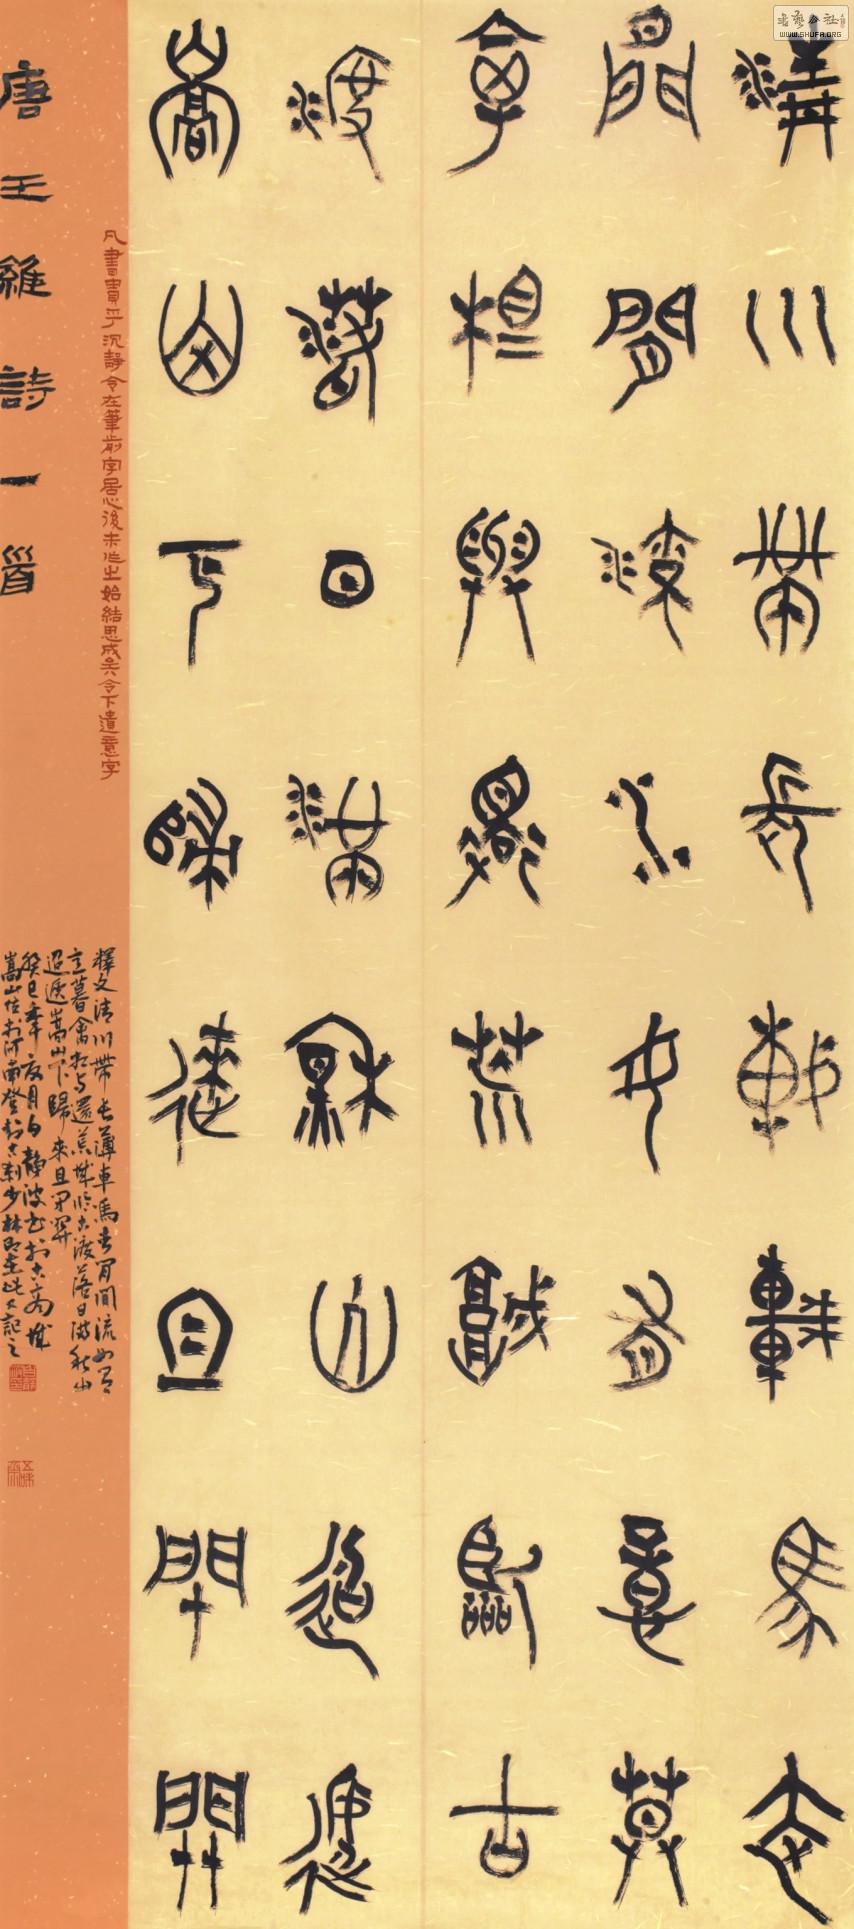 清川帶長薄車馬去
閒閒流水如有意暮
禽相與還荒城臨古
渡落日滿秋山迢遞
嵩山下歸來且閉關
凡書貴乎沉靜令在筆前字居心後未作之始結思成矣令下遺意字
釋文清川帶長薄車馬去閒閒流如有
意暮禽相與還荒城臨古渡落日满秋山
迢遞嵩山下歸來且閉關
癸巳年夏月白靜波书於古商城
嵩山位於河南登封古刹少林即在此又記之
唐王維詩一首
WWW.SHUFA.ORG